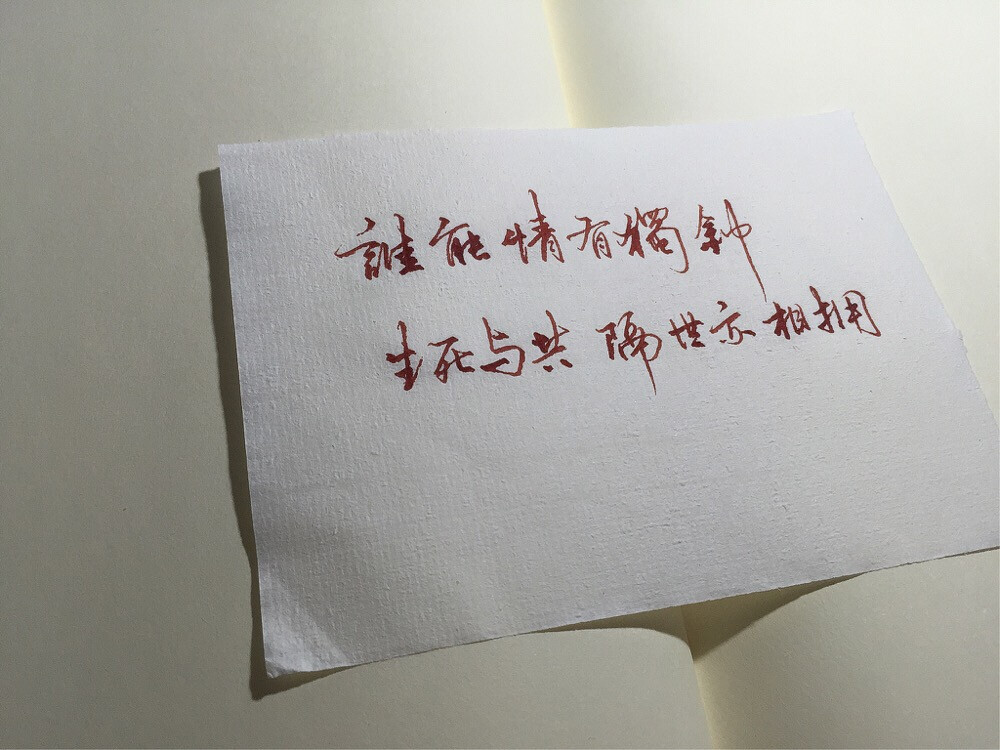 誰能情有獨鈡
生死与共 隔世亦相拥